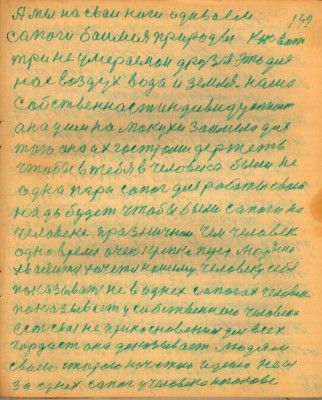 142
А мы на свои ноги одиваем
сапоги баимся природы как вот
три не умераемой друзья это для
нас воздух вода и земля. наша
собственность индивидуальност
она у
того она их гострыми держеть
чтобы в тебя в человека были не
одна пара сапог для работы своей
надо будет чтобы были сапоги на
человеке празничныи чем человек
одно время очен крепко перед людями
хвалитца хочет нашему человеку себя
показывать не в одних сапогах человек
показывает у собственного человека
есть своя не прикосновения для всех
гордаст она доказывает людям
свою старою
за одних сапог у человека на голове